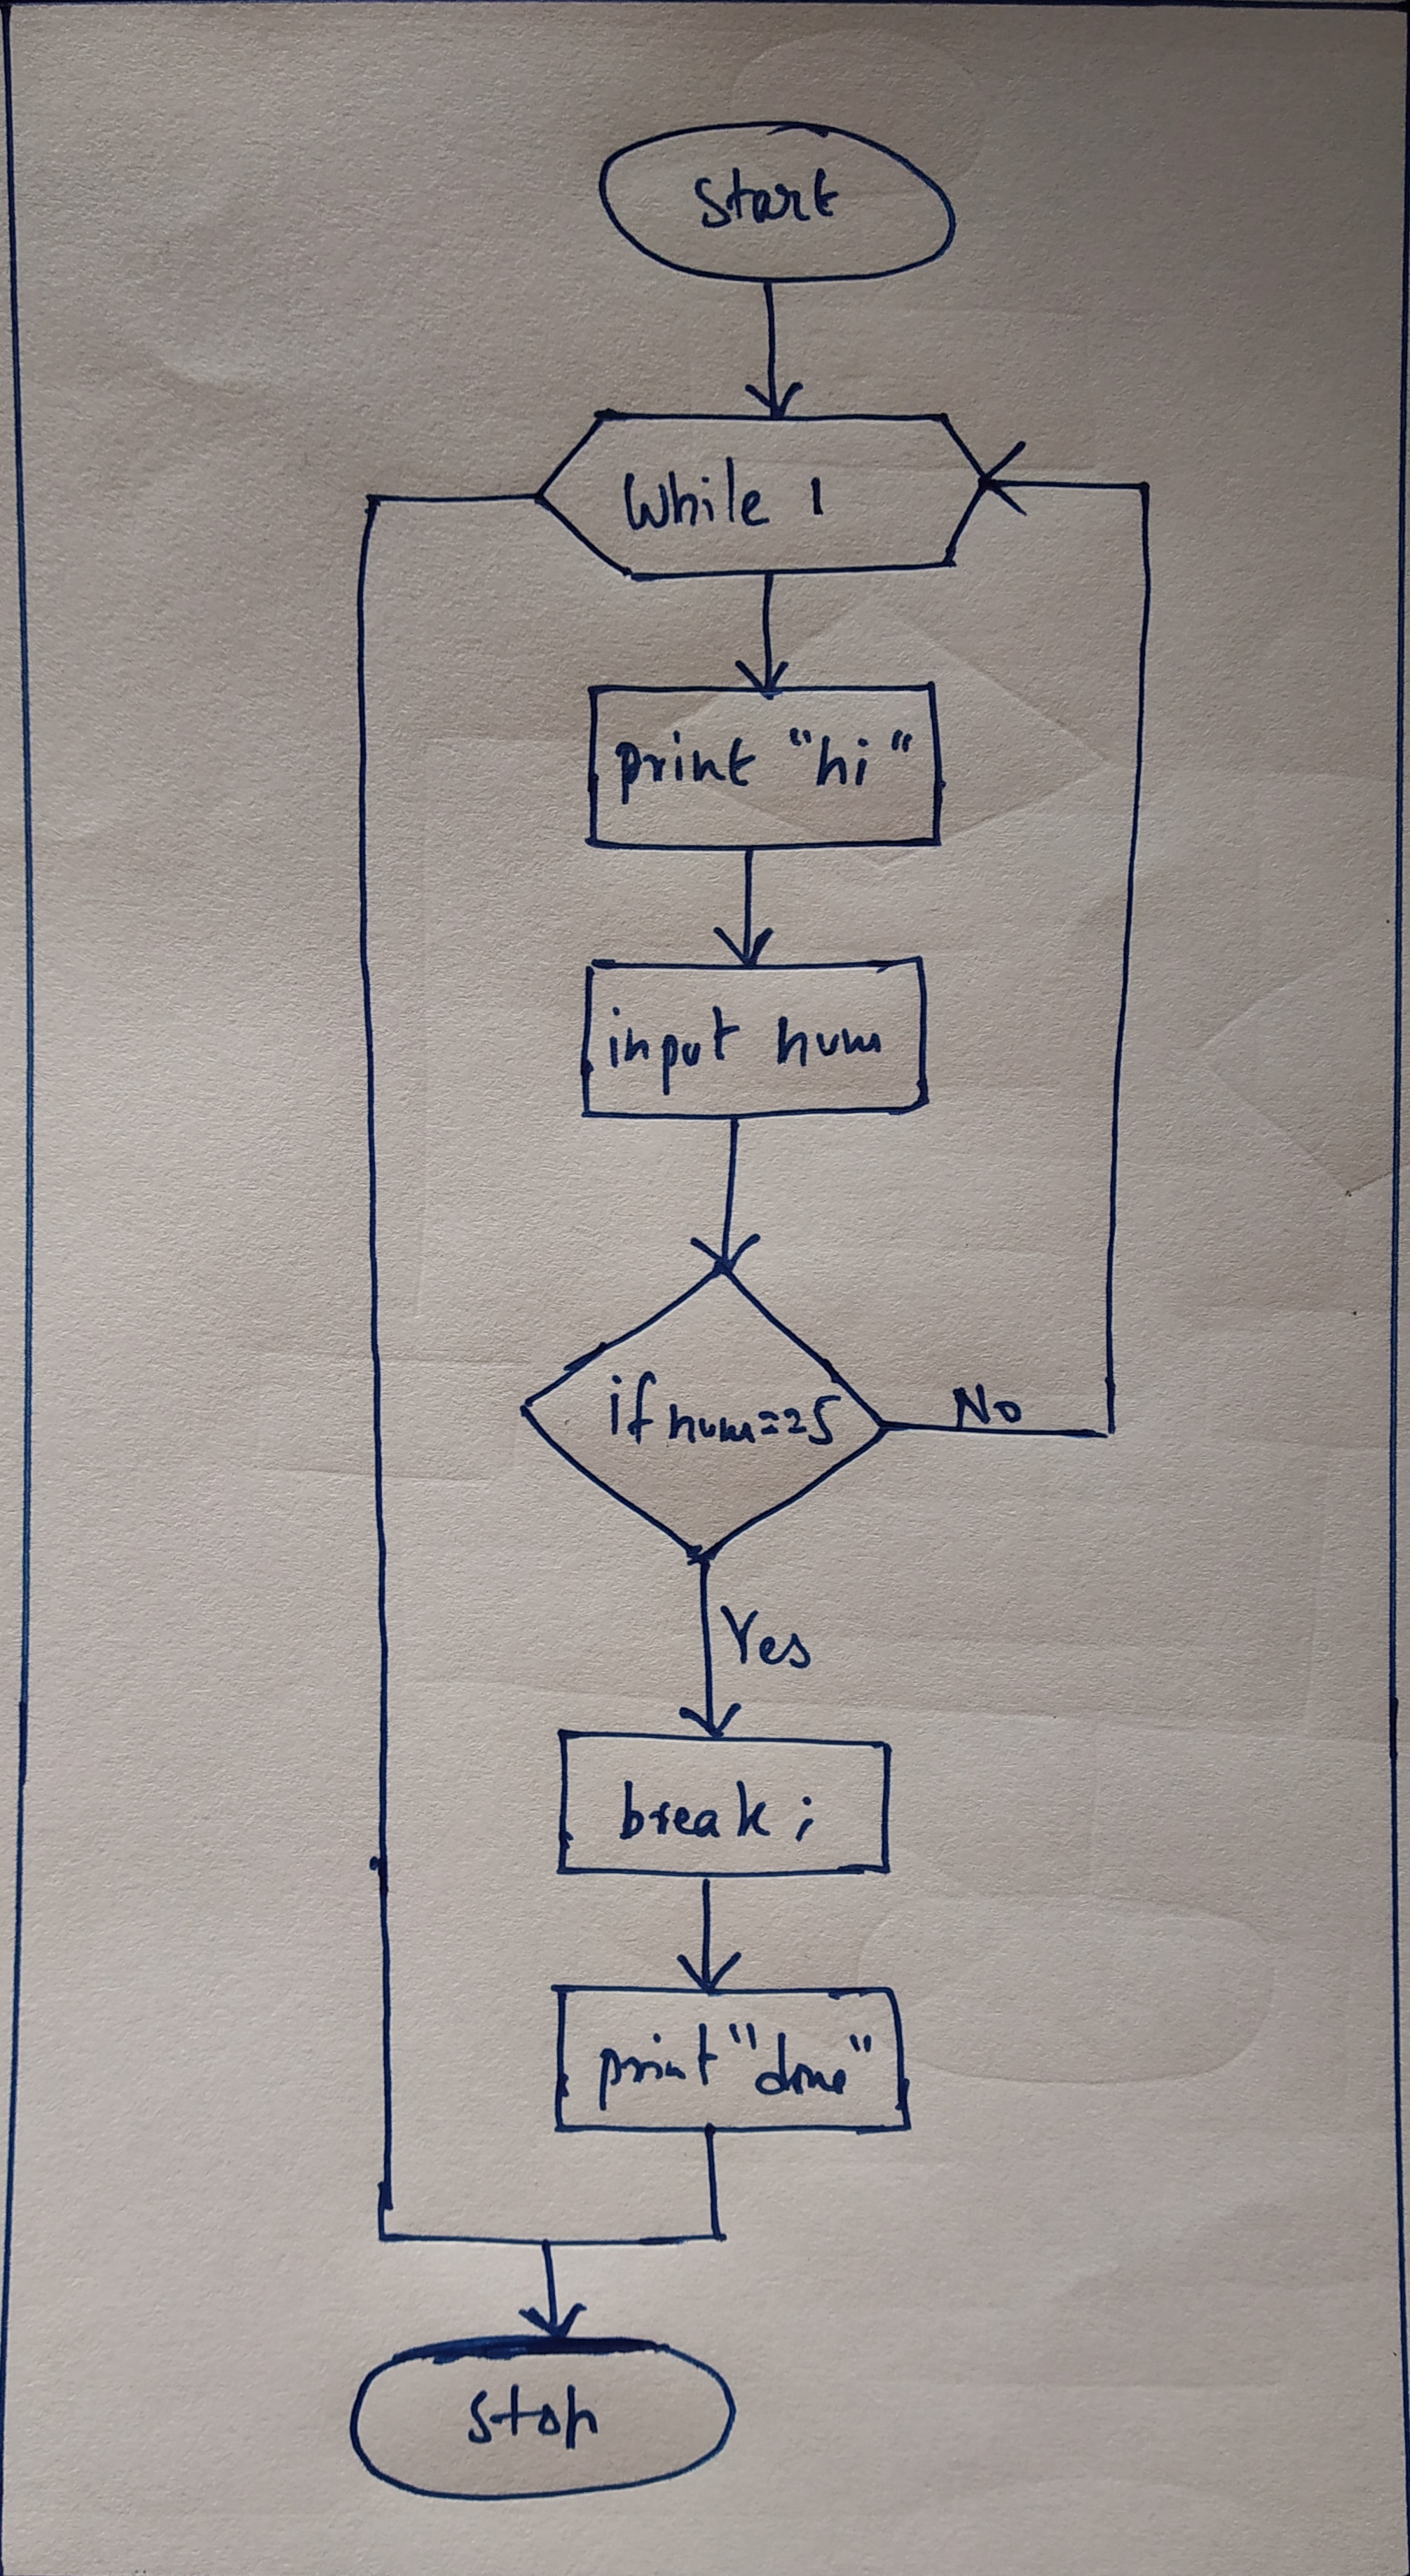 Start
While 1
print "hi"
input num
if num==25
No
Yes
break ;
print "done"
Stop